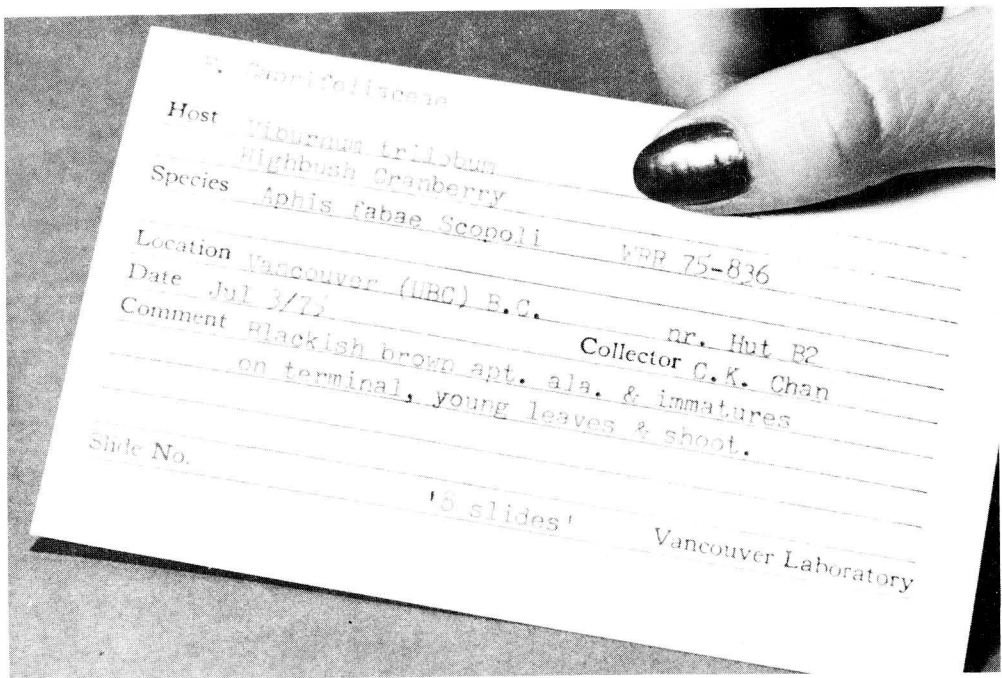 F. Caprifoliaceae
Host Viburnum trilobum
Highbush Cranberry
Species Aphis fabae Scopoli 75-836
Location Vancouver (UBC) B.C. nr. Hut B2
Date Jul 3/75 Collector C.K. Chan
Comment Blackish brown apt. ala. & immatures
on terminal, young leaves & shoot.
Slide No.
'8 slides' Vancouver Laboratory